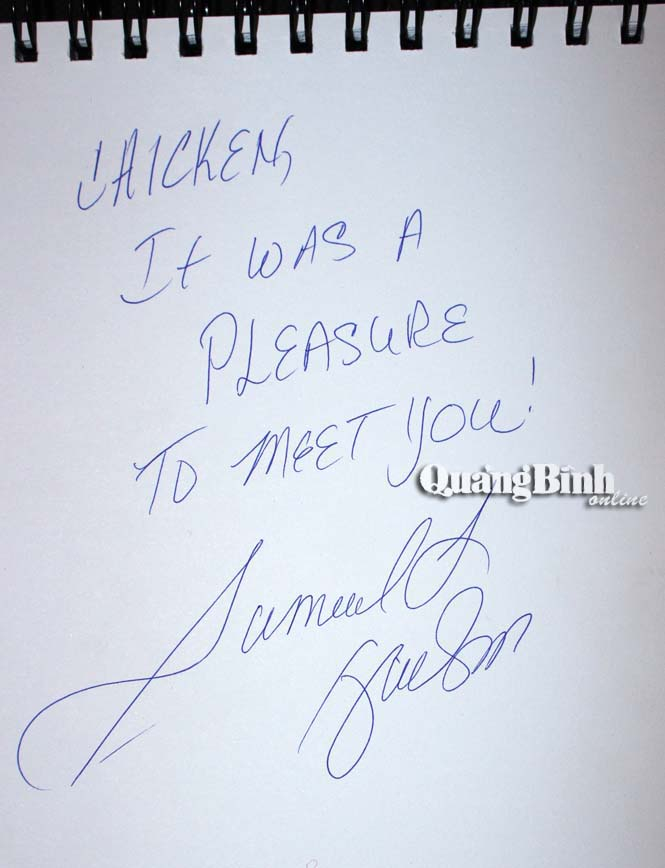 CHICKEN,
It WAS A
PLEASURE
TO MEET YOU!
QuảngBình
online
Samuel L
Jackson